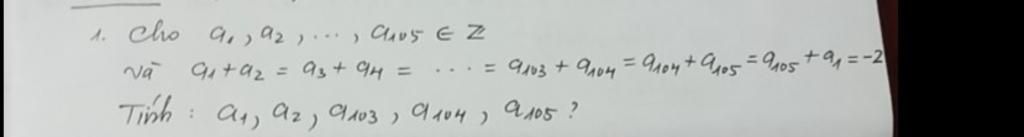 1. Cho a₁, a₂, ..., a₁₀₅ ∈ Z
và a₁ + a₂ = a₃ + a₄ = .... = a₁₀₃ + a₁₀₄ = a₁₀₄ + a₁₀₅ = a₁₀₅ + a₁ = -2
Tính : a₁, a₂, a₁₀₃, a₁₀₄, a₁₀₅ ?